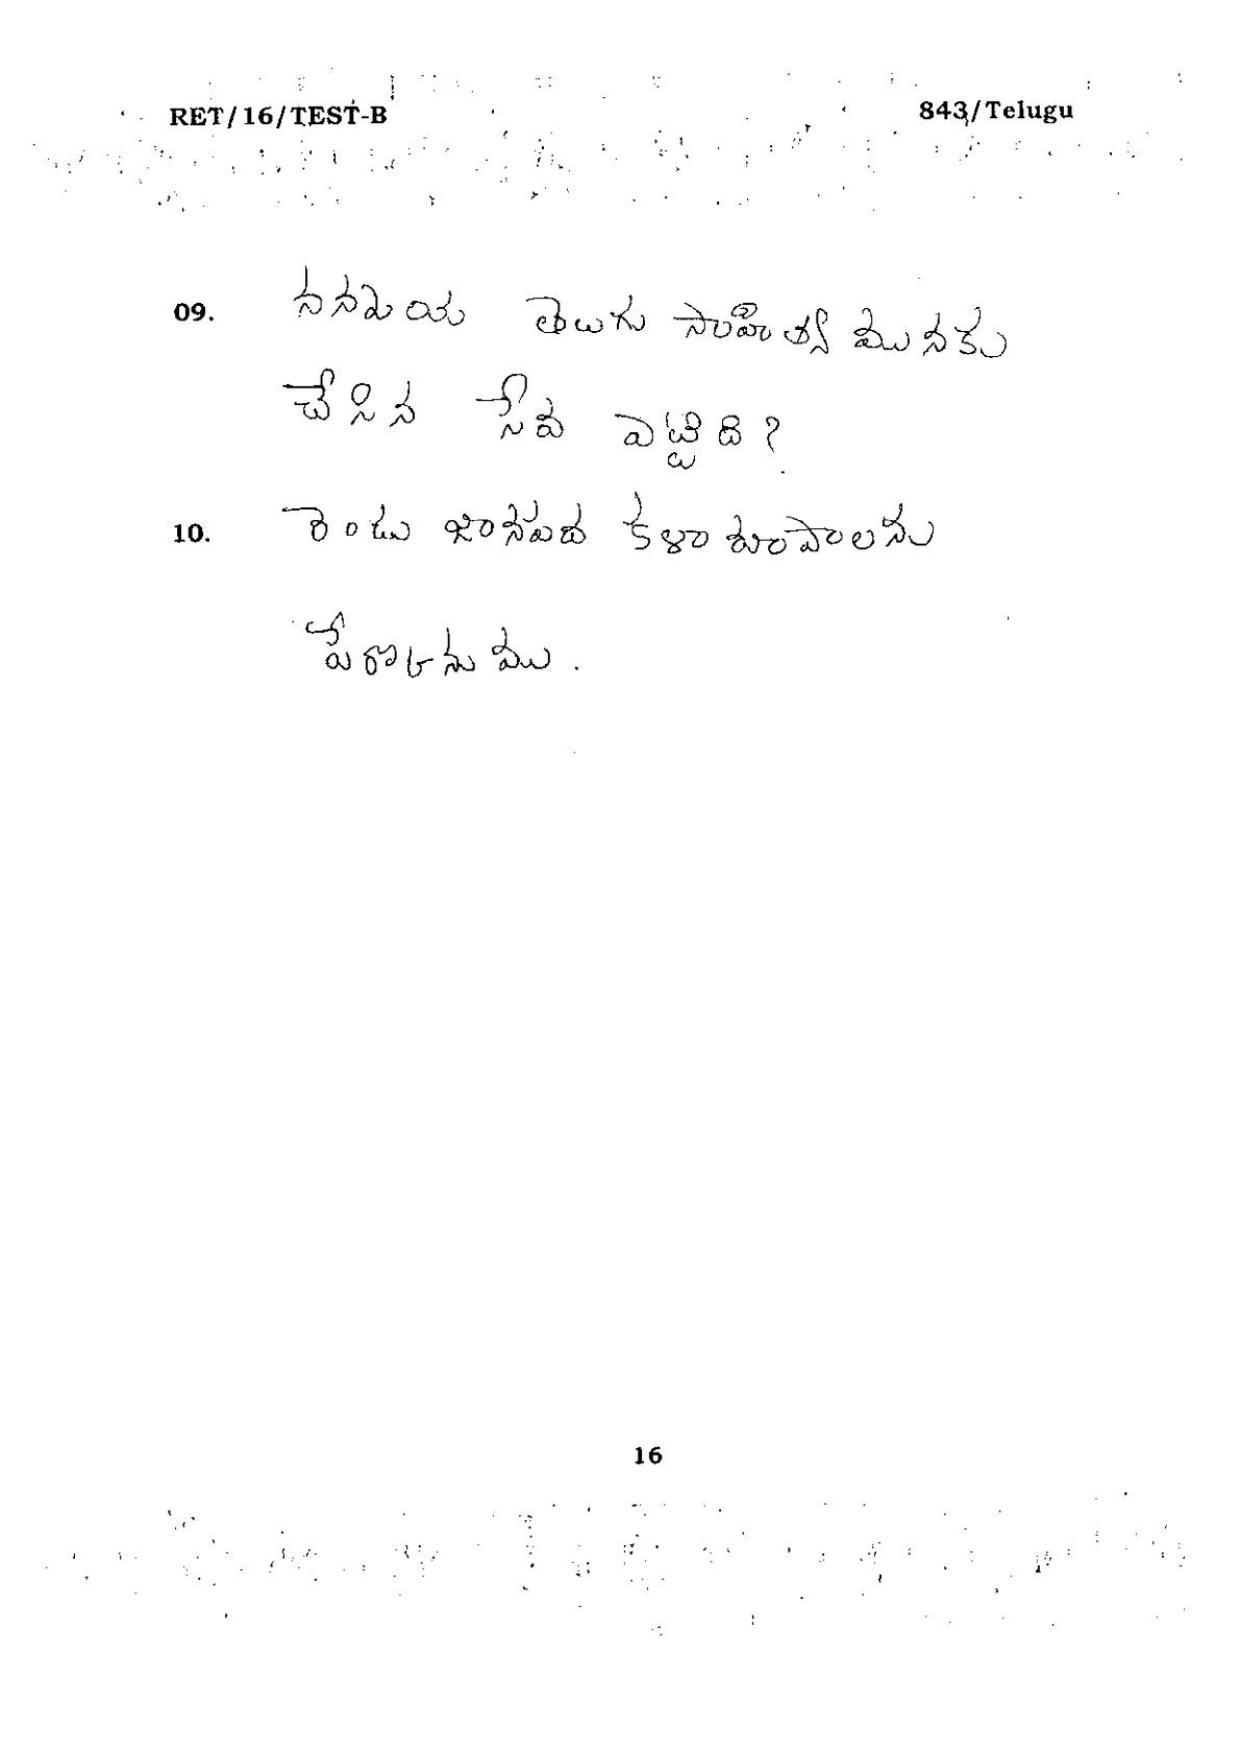 RET/16/TEST-B 843/Telugu
09. నన్నయ తెలుగు సాహిత్యమునకు
చేసిన సేవ ఎట్టిది?
10. రెండు జానపద కళారూపాలను
పేర్కొనుము.
16